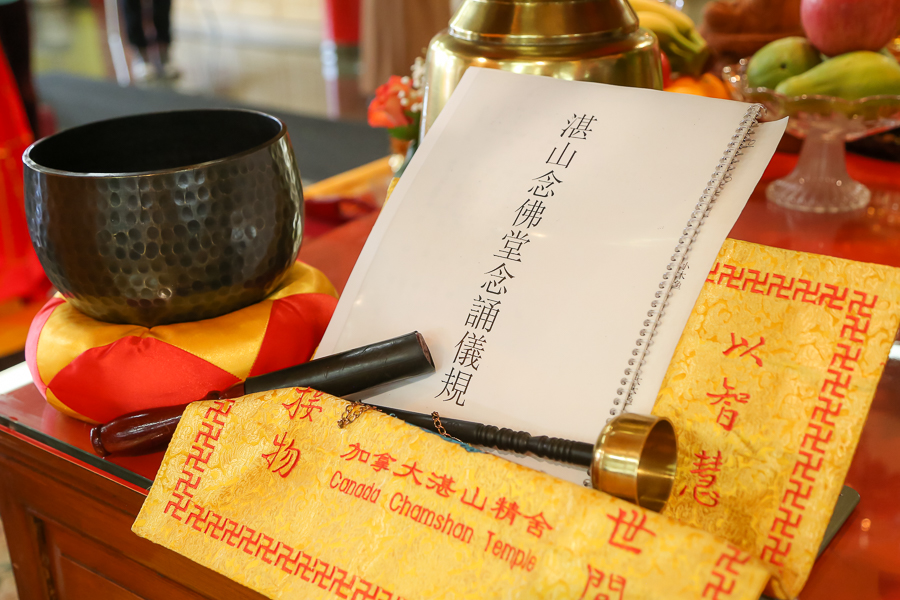 湛山念佛堂念誦儀規
以智慧
接物
加拿大湛山精舍
Canada Chamshan Temple
世間